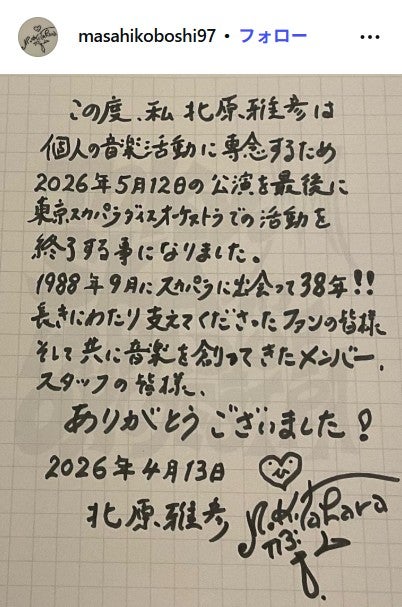 masahikoboshi97 • フォロー
この度、私 北原雅彦は
個人の音楽活動に専念するため
2026年5月12日の公演を最後に
東京スカパラダイスオーケストラでの活動を
終了する事になりました。
1988年9月にスカパラに出会って38年!!
長きにわたり支えてくださったファンの皆様
そして共に音楽を創ってきたメンバー、
スタッフの皆様、
ありがとうございました!
2026年4月13日
北原雅彦